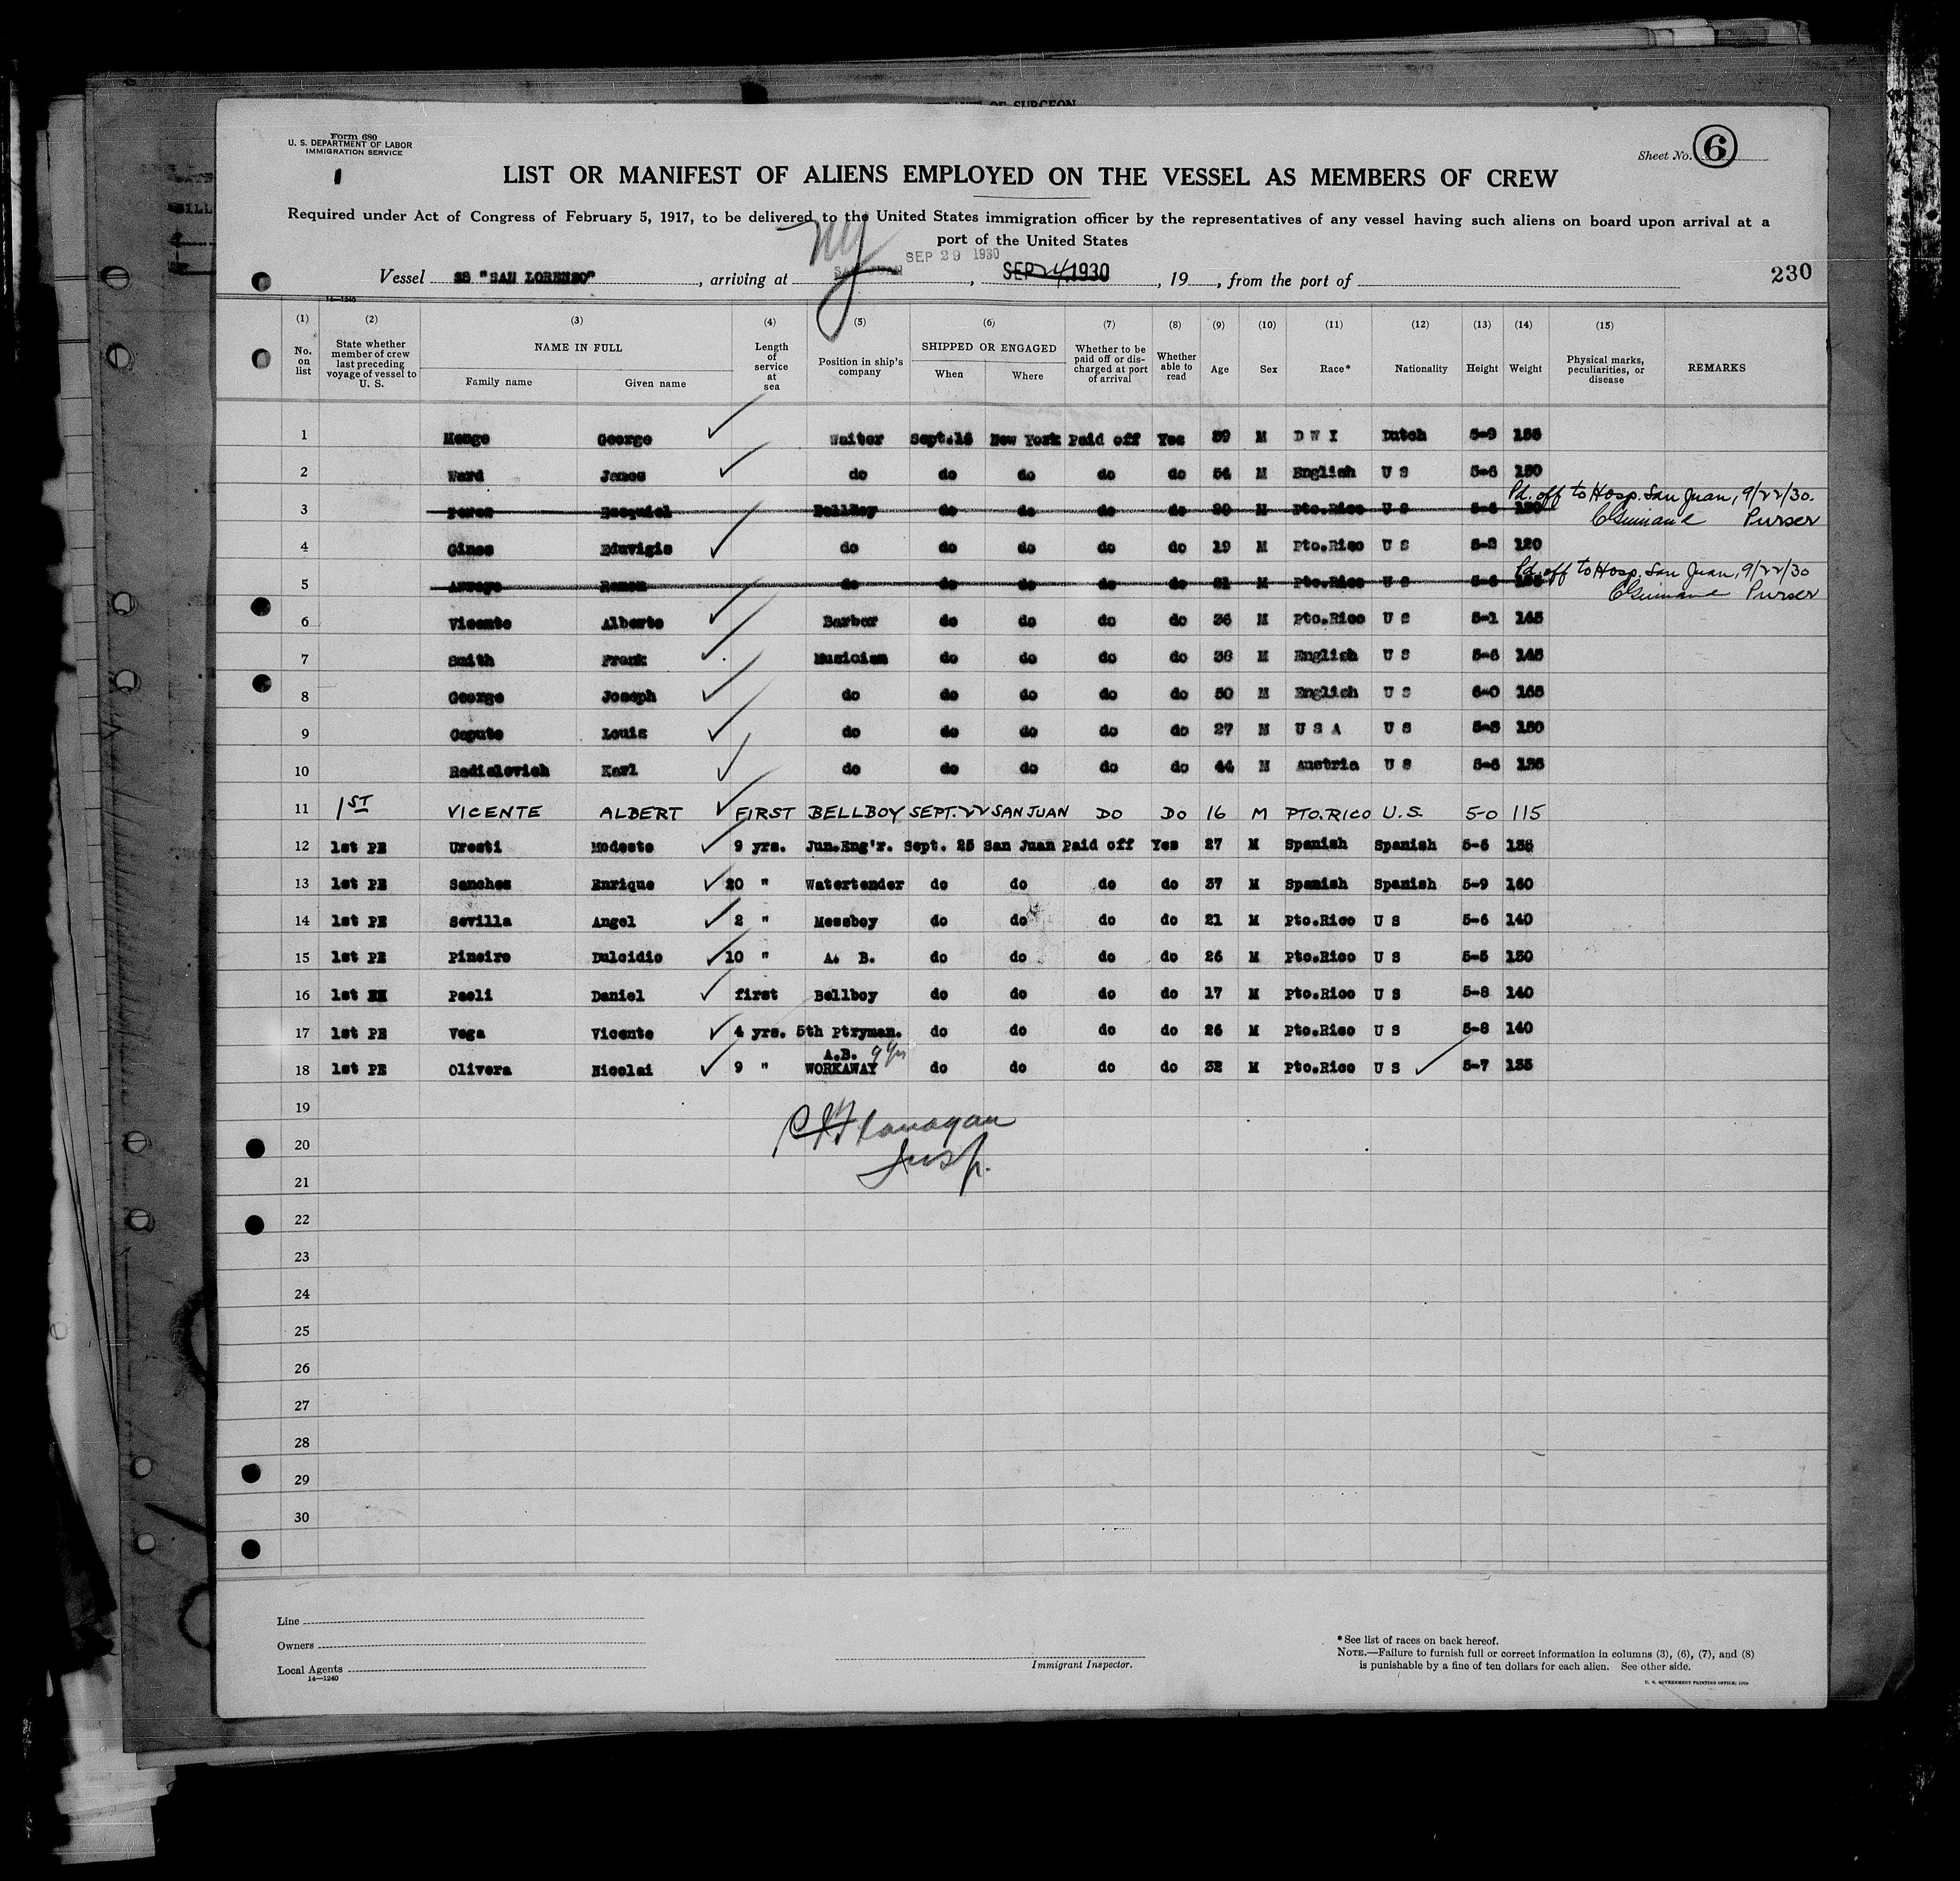 OF SURGEON
Form 680
U. S. DEPARTMENT OF LABOR
IMMIGRATION SERVICE
Sheet No. 6
LIST OR MANIFEST OF ALIENS EMPLOYED ON THE VESSEL AS MEMBERS OF CREW
Required under Act of Congress of February 5, 1917, to be delivered to the United States immigration officer by the representatives of any vessel having such aliens on board upon arrival at a
port of the United States
NY SEP 29 1930
Vessel SS "SAN LORENZO", arriving at SAN JUAN, SEP 24 1930, 19, from the port of
230
14—1240
(1) (2) (3) (4) (5) (6) (7) (8) (9) (10) (11) (12) (13) (14) (15)
No. on list State whether member of crew last preceding voyage of vessel to U. S. NAME IN FULL Family name Given name Length of service at sea Position in ship's company SHIPPED OR ENGAGED When Where Whether to be paid off or discharged at port of arrival Whether able to read Age Sex Race* Nationality Height Weight Physical marks, peculiarities, or disease REMARKS
1 Menge George Waiter Sept.16 New York Paid off Yes 39 M D W I Dutch 5-9 155
2 Ward James do do do do do 54 M English U S 5-6 150
3 BellBoy do do do do 20 M Pto.Rico U S 5-6 Pd. off to Hosp. San Juan, 9/22/30.
Purser
4 Gines Eduvigis do do do do do 19 M Pto.Rico U S 120
5 Arroyo Ramon do do do do do 21 M Pto.Rico U S 5-6 Pd. off to Hosp. San Juan, 9/22/30
Purser
6 Vicente Alberto Barber do do do do 36 M Pto.Rico U S 5-1 165
7 Smith Frank Musician do do do do M English U S 145
8 George Joseph do do do do do 50 M English U S 6-0 165
9 Caputo Louis do do do do do 27 M U S A U S 150
10 Radislovich Karl do do do do do 44 M Austria U S 5-6
11 1ST VICENTE ALBERT FIRST BELLBOY SEPT. 22 SAN JUAN DO DO 16 M PTO.RICO U.S. 5-0 115
12 1st PE Uresti Modesto 9 yrs. Jun.Eng'r. Sept. 25 San Juan Paid off Yes 27 M Spanish Spanish 5-6 135
13 1st PE Sanchez Enrique 20 " Watertender do do do do 37 M Spanish Spanish 5-9 160
14 1st PE Sevilla Angel 2 " Messboy do do do do 21 M Pto.Rico U S 5-6 140
15 1st PE Pineiro Dulcidio 10 " A. B. do do do do 26 M Pto.Rico U S 5-5 150
16 1st Paoli Daniel first Bellboy do do do do 17 M Pto.Rico U S 5-8 140
17 1st PE Vega Vicente 4 yrs. 5th Ptryman. do do do do 26 M Pto.Rico U S 5-8 140
A.B. 9 Yrs
18 1st PE Olivera Nicolai 9 " WORKAWAY do do do do 32 M Pto.Rico U S 5-7 135
19
Flanagan
20
Insp.
21
22
23
24
25
26
27
28
29
30
Line
Owners
Local Agents
14—1240
Immigrant Inspector.
* See list of races on back hereof.
NOTE.—Failure to furnish full or correct information in columns (3), (6), (7), and (8)
is punishable by a fine of ten dollars for each alien. See other side.
U. S. GOVERNMENT PRINTING OFFICE: